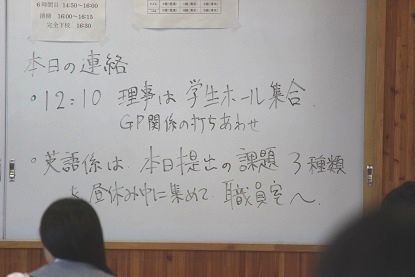 6時間目 14:50〜16:00
清掃 16:00〜16:15
完全下校 16:30
本日の連絡
• 12:10 理事は 学生ホール集合.
GP関係の打ちあわせ
• 英語係は. 本日提出の課題 3種類
を 昼休み中に集めて. 職員室へ.